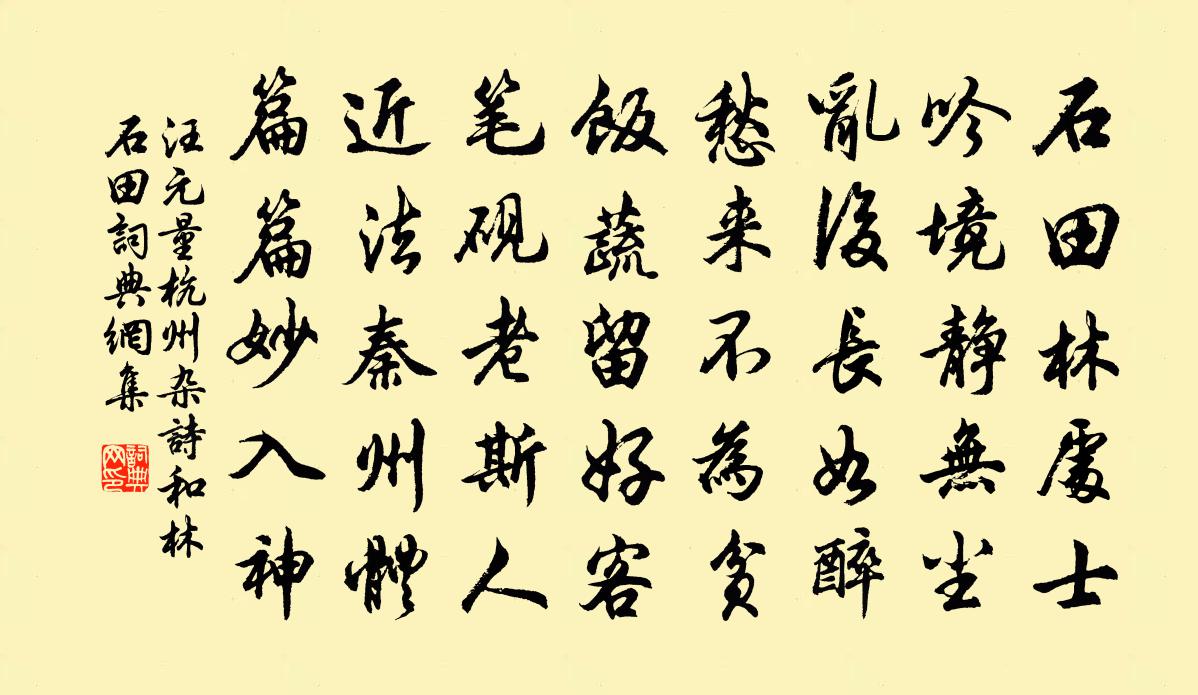 石田林處士
吟境静無尘
亂後長如醉
愁来不為貧
飯蔬留好客
笔砚老斯人
近法秦州體
篇篇妙入神
汪元量杭州杂詩和林
石田詞典網集
詞典
网印